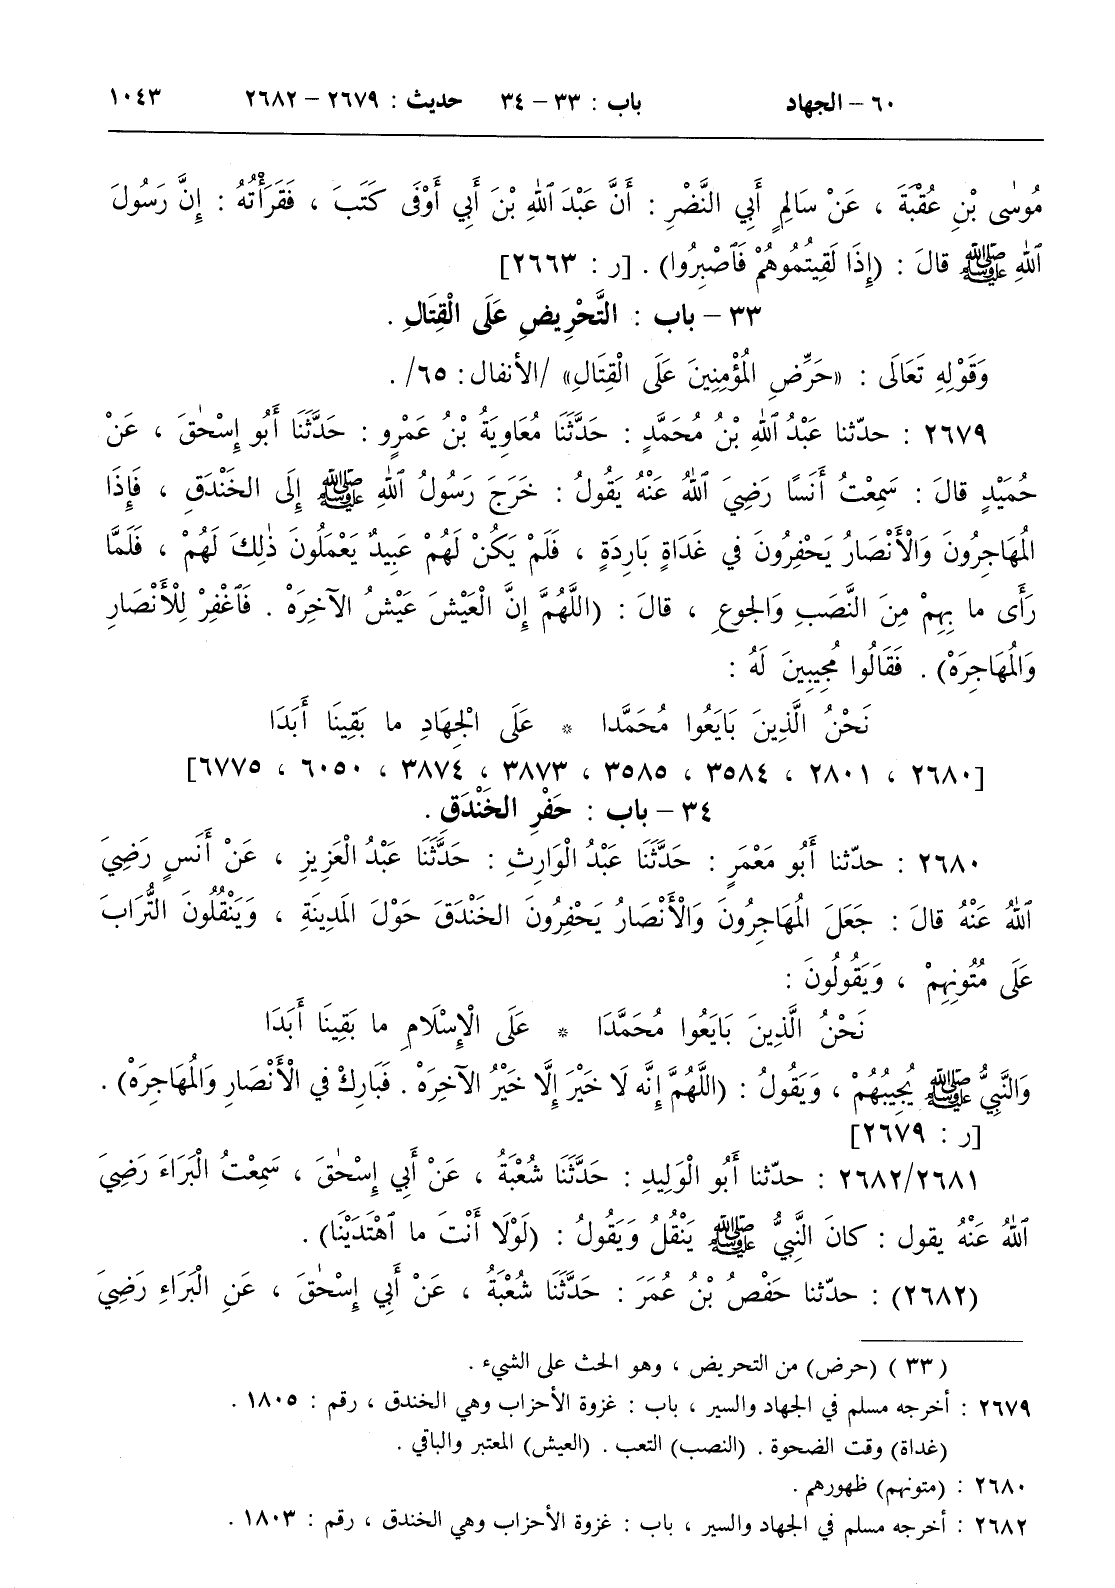 ٦٠ – الجهاد باب : ٣٣ – ٣٤ حديث : ٢٦٧٩ – ٢٦٨٢ ١٠٤٣
مُوسٰى بْنِ عُقْبَةَ ، عَنْ سَالِمٍ أَبِي النَّضْرِ : أَنَّ عَبْدَ ٱللهِ بْنَ أَبِي أَوْفَى كَتَبَ ، فَقَرَأْتُهُ : إِنَّ رَسُولَ
ٱللهِ ﷺ قالَ : (إِذَا لَقِيتُمُوهُمْ فَٱصْبِرُوا) . [ر : ٢٦٦٣]
٣٣ – باب : التَّحْرِيضِ عَلَى الْقِتَالِ .
وَقَوْلِهِ تَعَالَى : «حَرِّضِ الْمُؤْمِنِينَ عَلَى الْقِتَالِ» /الأنفال: ٦٥/ .
٢٦٧٩ : حدّثنا عَبْدُ ٱللهِ بْنُ مُحَمَّدٍ : حَدَّثَنَا مُعَاوِيَةُ بْنُ عَمْرٍو : حَدَّثَنَا أَبُو إِسْحٰقَ ، عَنْ
حُمَيْدٍ قالَ : سَمِعْتُ أَنَسًا رَضِيَ ٱللهُ عَنْهُ يَقُولُ : خَرَجَ رَسُولُ ٱللهِ ﷺ إِلَى الخَنْدَقِ ، فَإِذَا
المُهَاجِرُونَ وَالْأَنْصَارُ يَحْفِرُونَ في غَدَاةٍ بَارِدَةٍ ، فَلَمْ يَكُنْ لَهُمْ عَبِيدٌ يَعْمَلُونَ ذٰلِكَ لَهُمْ ، فَلَمَّا
رَأَى ما بِهِمْ مِنَ النَّصَبِ وَالجُوعِ ، قالَ : (اللَّهُمَّ إِنَّ الْعَيْشَ عَيْشُ الآخِرَهْ . فَٱغْفِرْ لِلْأَنْصَارِ
وَالمُهَاجِرَهْ) . فَقَالُوا مُجِيبِينَ لَهُ :
نَحْنُ الَّذِينَ بَايَعُوا مُحَمَّدا * عَلَى الْجِهَادِ ما بَقِينَا أَبَدَا
[٢٦٨٠ ، ٢٨٠١ ، ٣٥٨٤ ، ٣٥٨٥ ، ٣٨٧٣ ، ٣٨٧٤ ، ٦٠٥٠ ، ٦٧٧٥]
٣٤ – باب : حَفْرِ الخَنْدَقِ .
٢٦٨٠ : حدّثنا أَبُو مَعْمَرٍ : حَدَّثَنَا عَبْدُ الْوَارِثِ : حَدَّثَنَا عَبْدُ الْعَزِيزِ ، عَنْ أَنَسٍ رَضِيَ
ٱللهُ عَنْهُ قالَ : جَعَلَ المُهَاجِرُونَ وَالْأَنْصَارُ يَحْفِرُونَ الخَنْدَقَ حَوْلَ المَدِينَةِ ، وَيَنْقُلُونَ التُّرَابَ
عَلَى مُتُونِهِمْ ، وَيَقُولُونَ :
نَحْنُ الَّذِينَ بَايَعُوا مُحَمَّدَا * عَلَى الْإِسْلَامِ ما بَقِينَا أَبَدَا
وَالنَّبِيُّ ﷺ يُجِيبُهُمْ ، وَيَقُولُ : (اللَّهُمَّ إِنَّه لَا خَيْرَ إِلَّا خَيْرُ الآخِرَهْ . فَبَارِكْ في الْأَنْصَارِ وَالمُهَاجِرَهْ) .
[ر : ٢٦٧٩]
٢٦٨٢/٢٦٨١ : حدّثنا أَبُو الْوَلِيدِ : حَدَّثَنَا شُعْبَةُ ، عَنْ أَبِي إِسْحٰقَ ، سَمِعْتُ الْبَرَاءَ رَضِيَ
ٱللهُ عَنْهُ يقول : كانَ النَّبِيُّ ﷺ يَنْقُلُ وَيَقُولُ : (لَوْلَا أَنْتَ ما ٱهْتَدَيْنَا) .
(٢٦٨٢) : حدّثنا حَفْصُ بْنُ عُمَرَ : حَدَّثَنَا شُعْبَةُ ، عَنْ أَبِي إِسْحٰقَ ، عَنِ الْبَرَاءِ رَضِيَ
( ٣٣ ) (حرض) من التحريض ، وهو الحث على الشيء .
٢٦٧٩ : أخرجه مسلم في الجهاد والسير ، باب : غزوة الأحزاب وهي الخندق ، رقم : ١٨٠٥ .
(غداة) وقت الضحوة . (النصب) التعب . (العيش) المعتبر والباقي .
٢٦٨٠ : (متونهم) ظهورهم .
٢٦٨٢ : أخرجه مسلم في الجهاد والسير ، باب : غزوة الأحزاب وهي الخندق ، رقم : ١٨٠٣ .